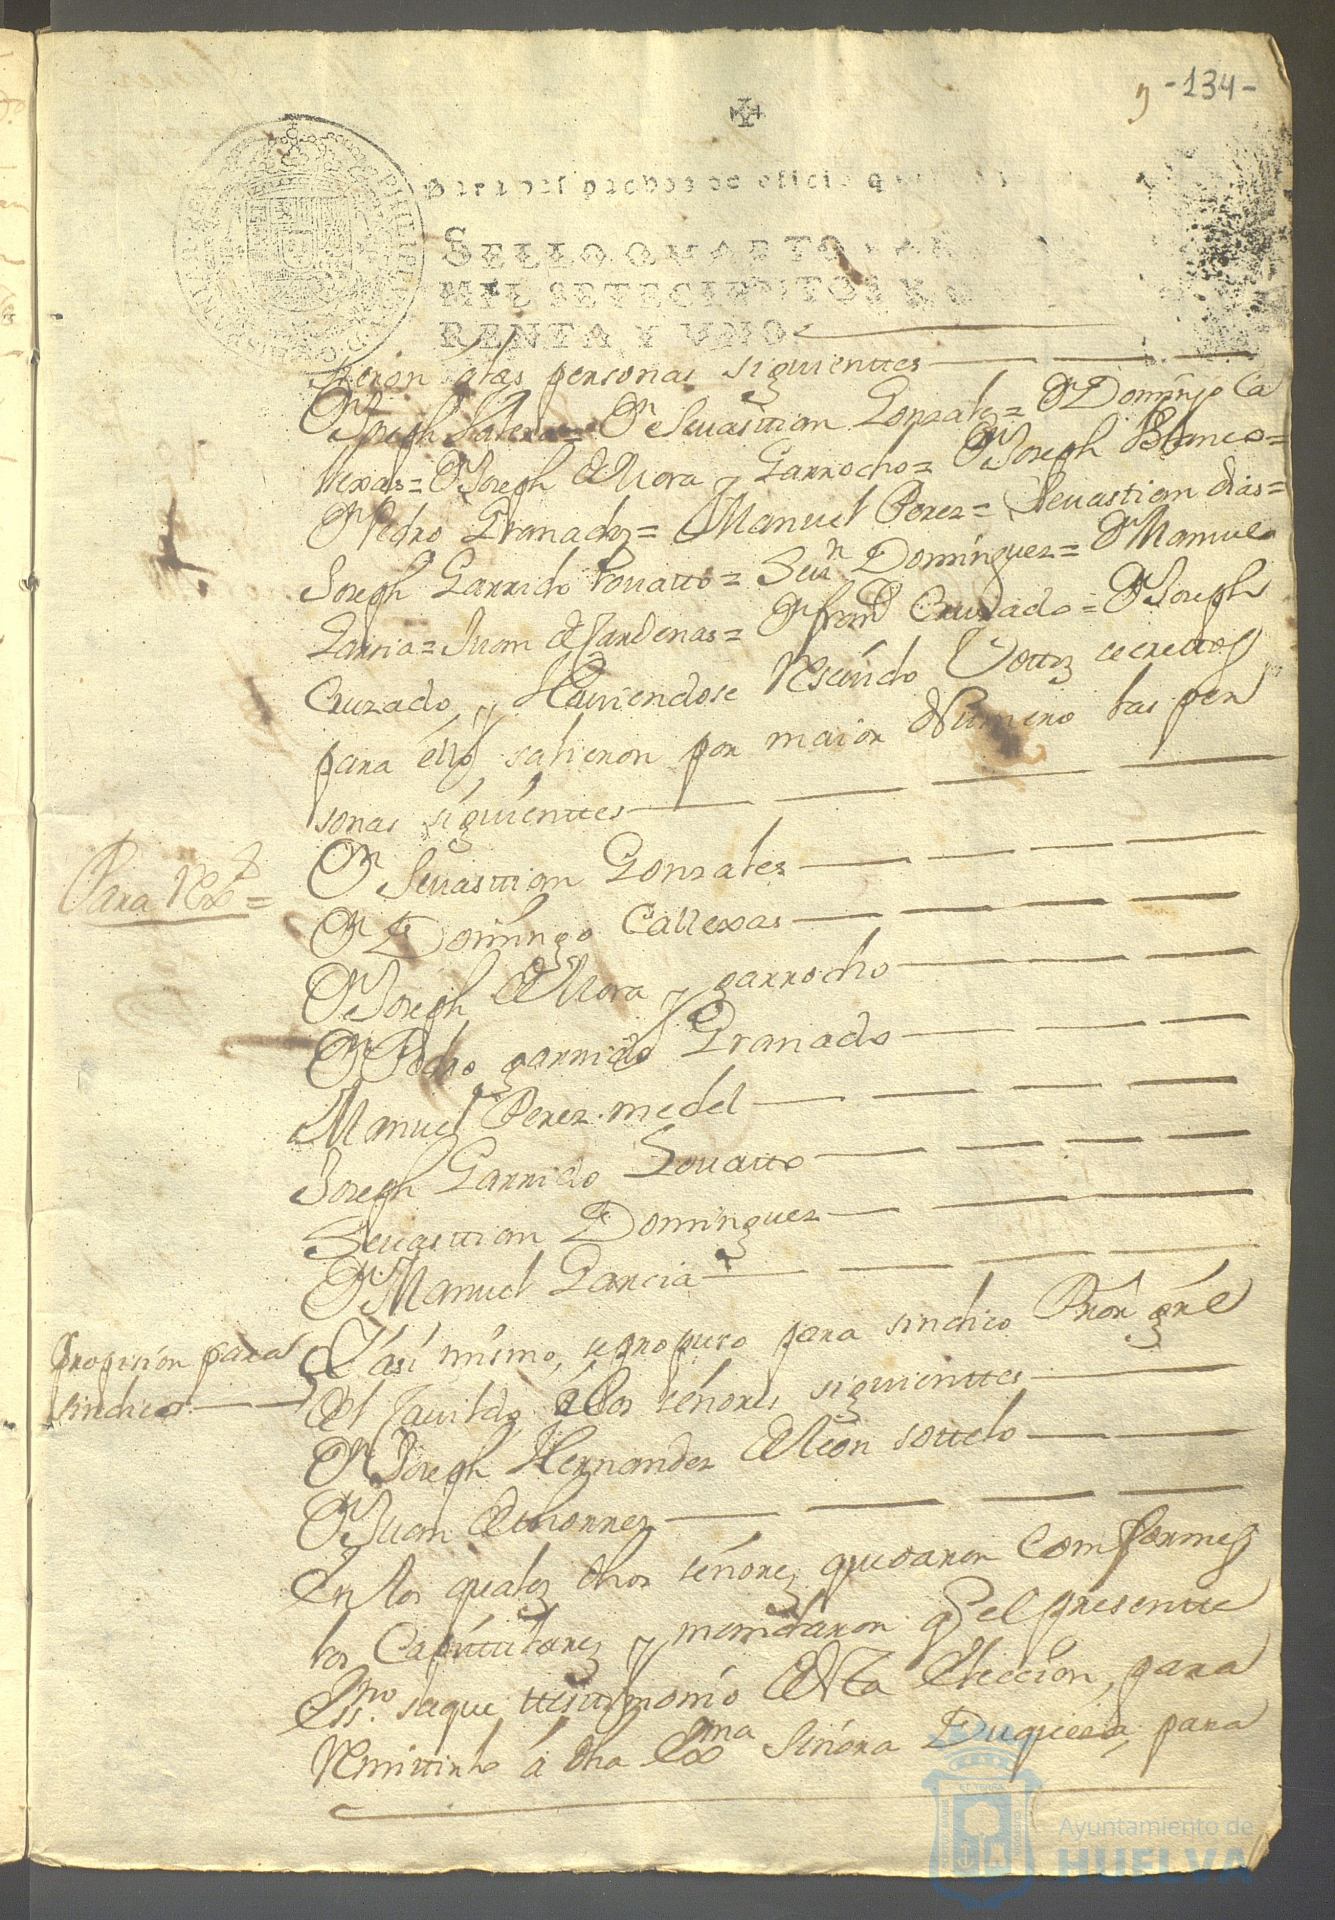 9 -134-
Para despachos de oficio q
SELLO QUARTO, AÑ
MIL SETECIENTOS Y QUA
RENTA Y UNO.
sieron a las personas siguienttes
Dn Joseph = Dn Sevasttian Gonzalez = Dn Domingo Ca
llexas = Dn Joseph de Mora y Garrocho = Dn Joseph Blanco =
Dn Pedro Granados = Manuel Perez = Sevastian dias =
Joseph Garrido Lovatto = Sevn Dominguez = Dn Manuel
Garcia = Juan de Cardenas = Dn Franco Cruzado = Dn Joseph
Cruzado y Haviendose Resevido Vottos secrettos
para ello salieron por maior Numero las per
sonas siguienttes
Para Rexs =
Dn Sevasttian Gonzales
Dn Domingo Callexas
Dn Joseph de Mora y garrocho
Dn Pedro garrido Granado
Manuel Perez medel
Joseph Garrido Lovatto
Sevasttian Dominguez
Dn Manuel Garcia
propision para
sindico
Y asi mismo, se propuso para sindico Pror gral
el Cavildo a los señores siguienttes
Dn Joseph Hernandez de leon sottelo
Dn Juan de thorres
En los quales dhos señores quedaron comformes
los Capittulares y mandaron qe el presentte
Essno. saque ttesttimonio de esta Eleccion, para
Remittirlo a dha Exma Señora Duquesa, para
Ayuntamiento de
HUELVA